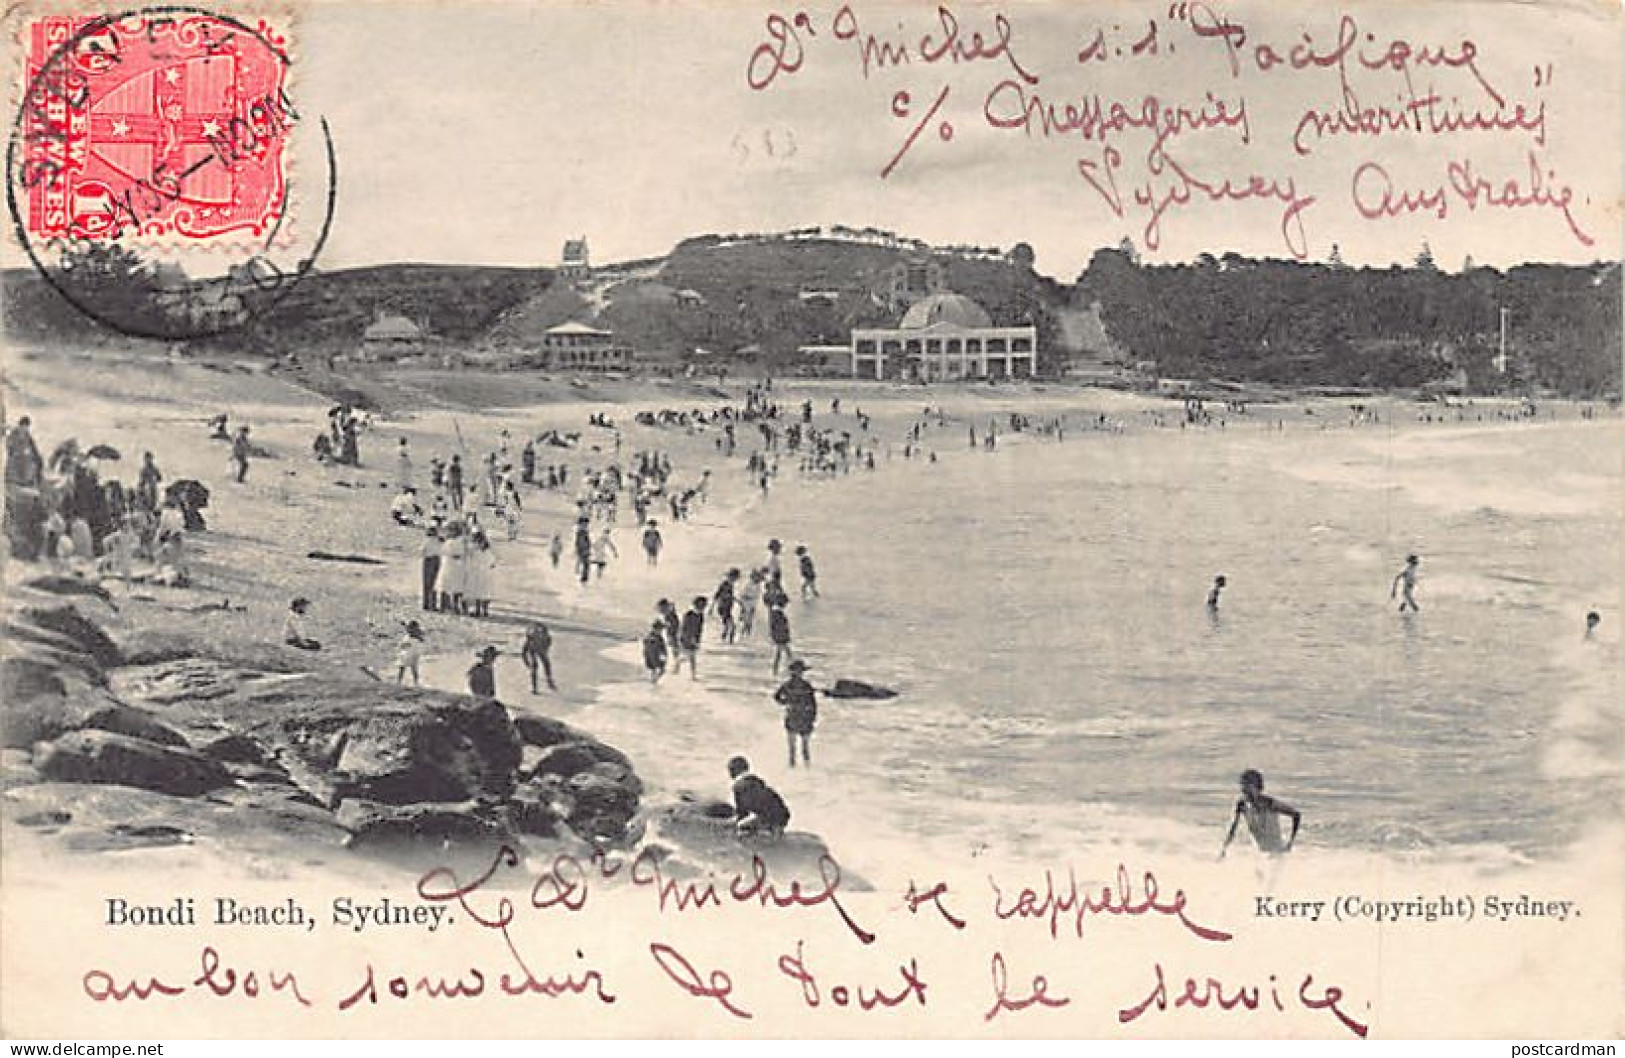 Dr Michel s.s. "Pacifique
c/o Messageries maritimes"
Sydney Australie.
SYDNEY
NEW
SOUTH WALES
POSTAGE
1d
1d
NOON
Bondi Beach, Sydney.
Le Dr Michel se rappelle
Kerry (Copyright) Sydney.
au bon souvenir de tout le service.
Delcampe.net
postcardman